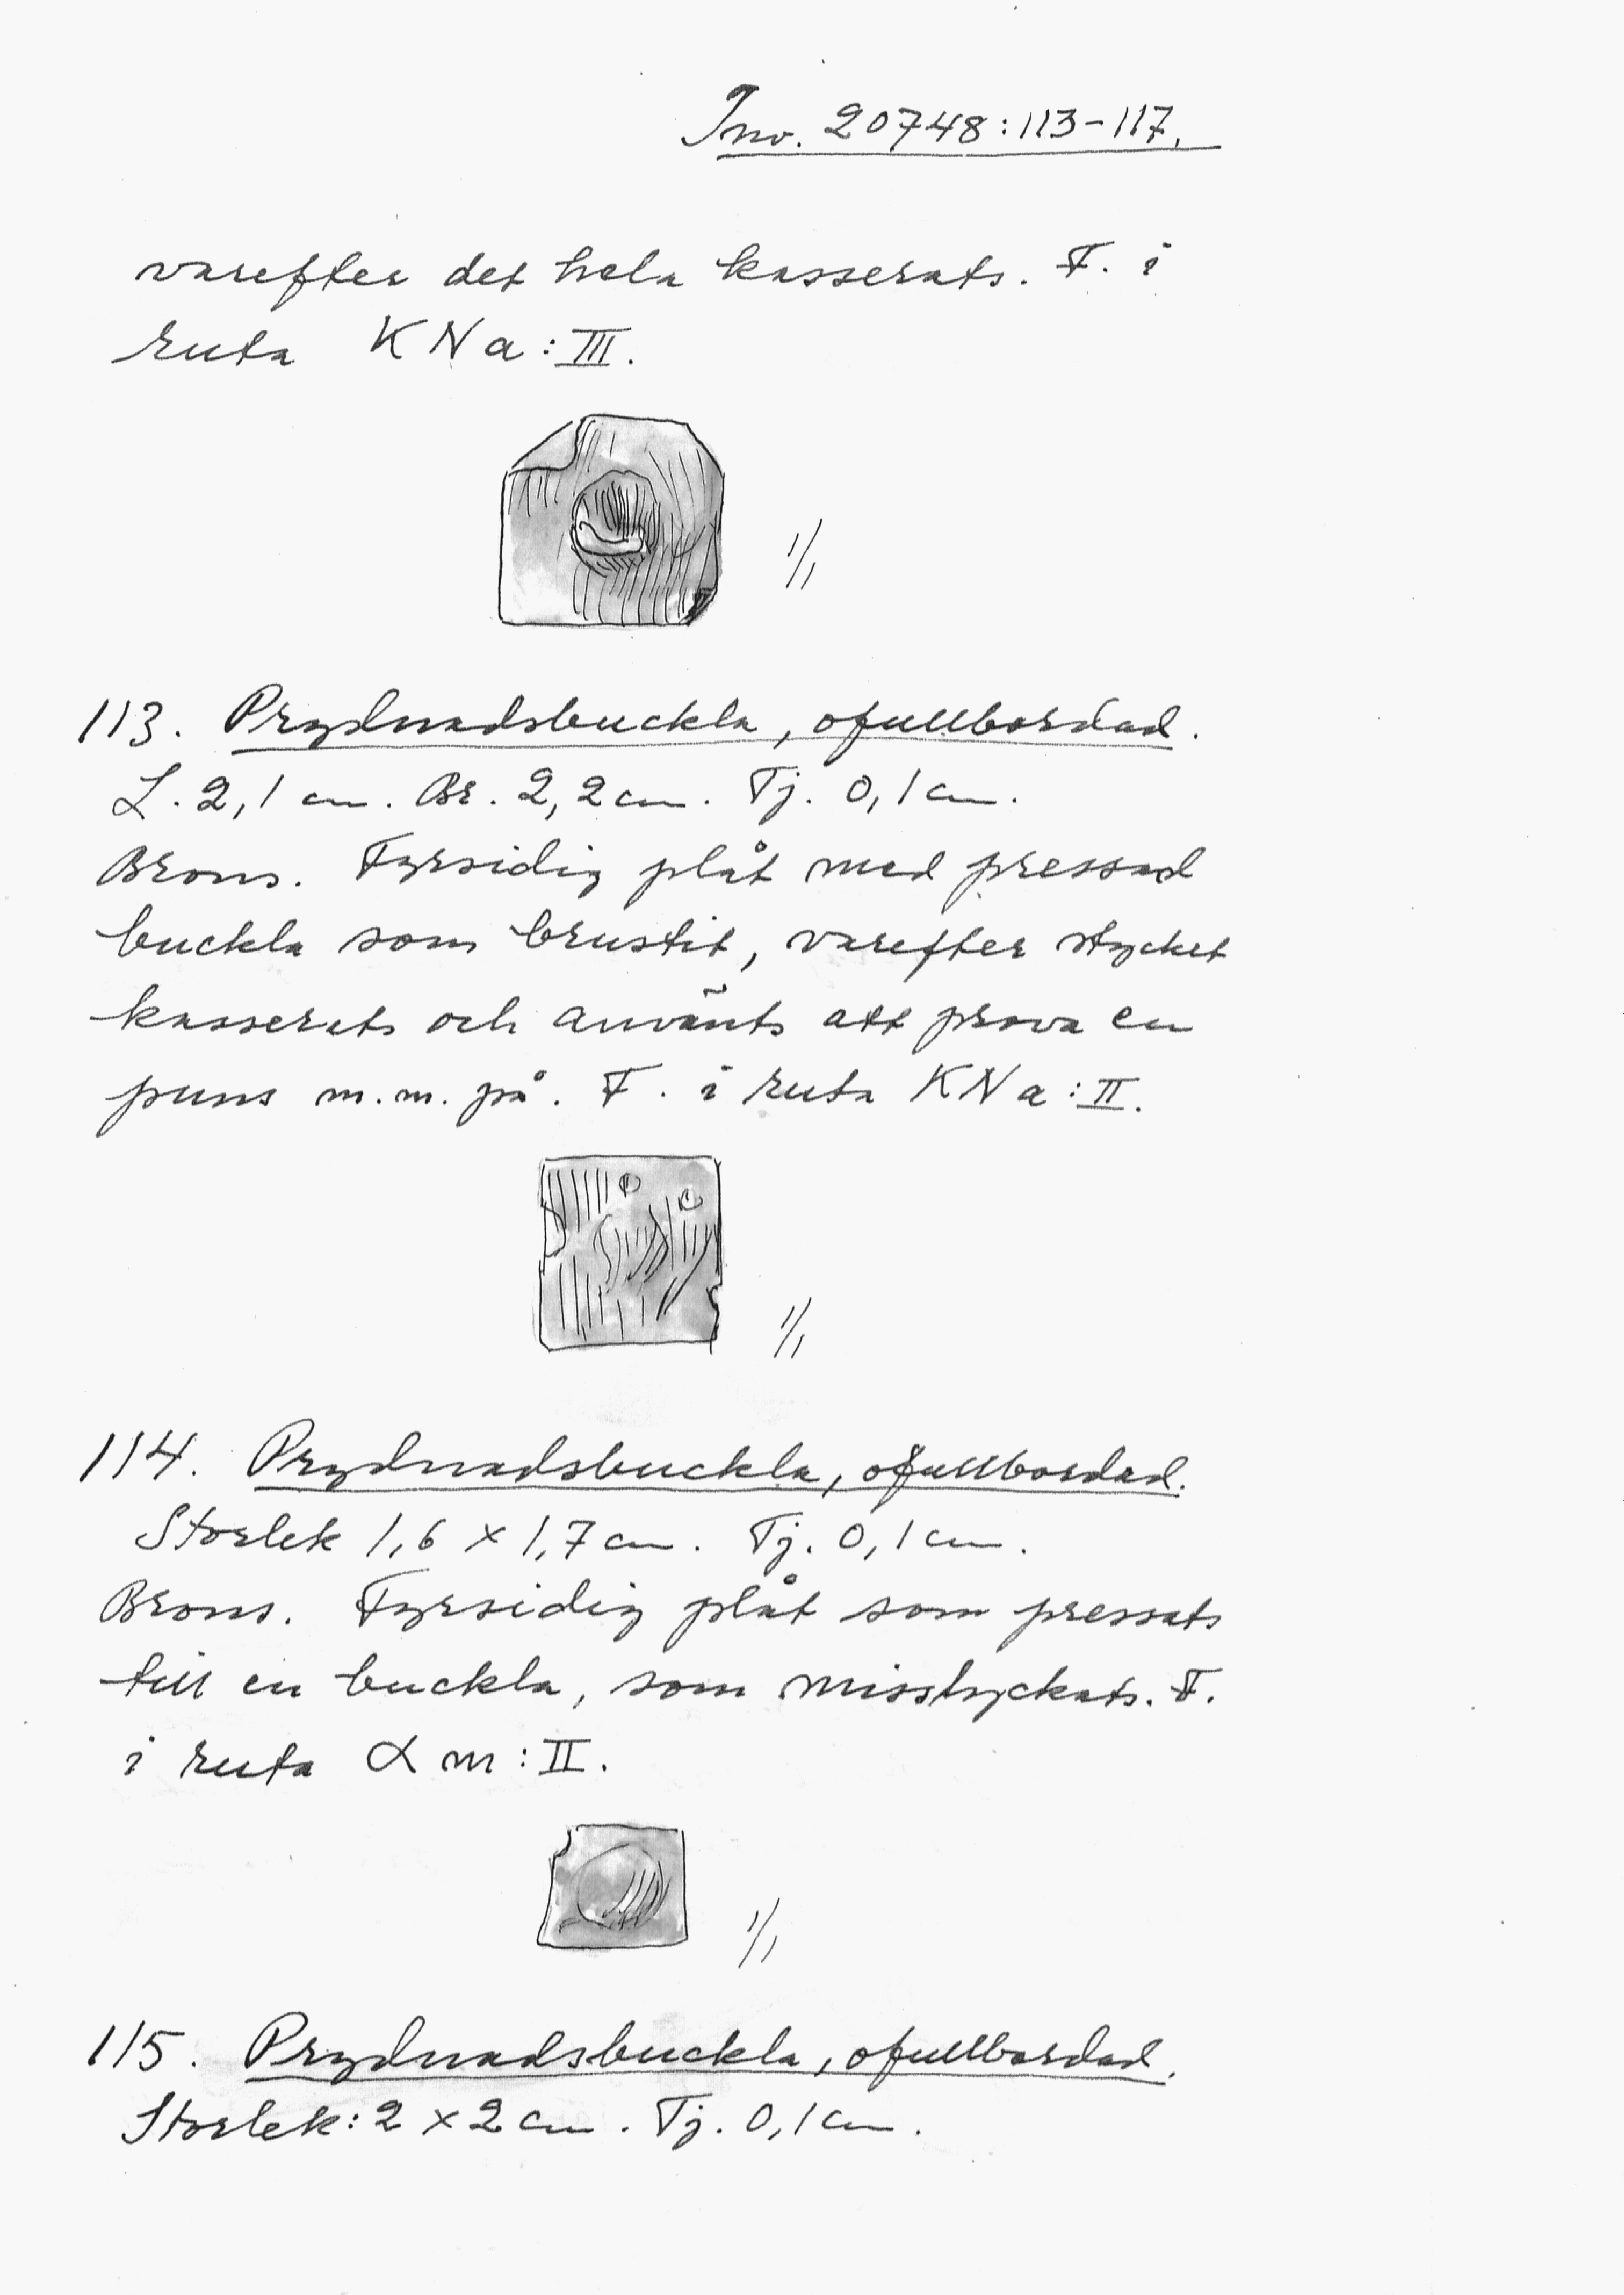 Inv. 20748:113-117.
varefter det hela kasserats. F. i
ruta KNa:III.
1/1
113. Prydnadsbuckla, ofullbordad.
L. 2,1 cm. Br. 2,2 cm. Tj. 0,1 cm.
Brons. Fyrsidig plåt med pressad
buckla som brustit, varefter stycket
kasserats och använts att prova en
puns m.m. på. F. i ruta KNa:II.
1/1
114. Prydnadsbuckla, ofullbordad.
Storlek 1,6 x 1,7 cm. Tj. 0,1 cm.
Brons. Fyrsidig plåt som pressats
till en buckla, som misslyckats. F.
i ruta α m:II.
1/1
115. Prydnadsbuckla, ofullbordad.
Storlek: 2 x 2 cm. Tj. 0,1 cm.